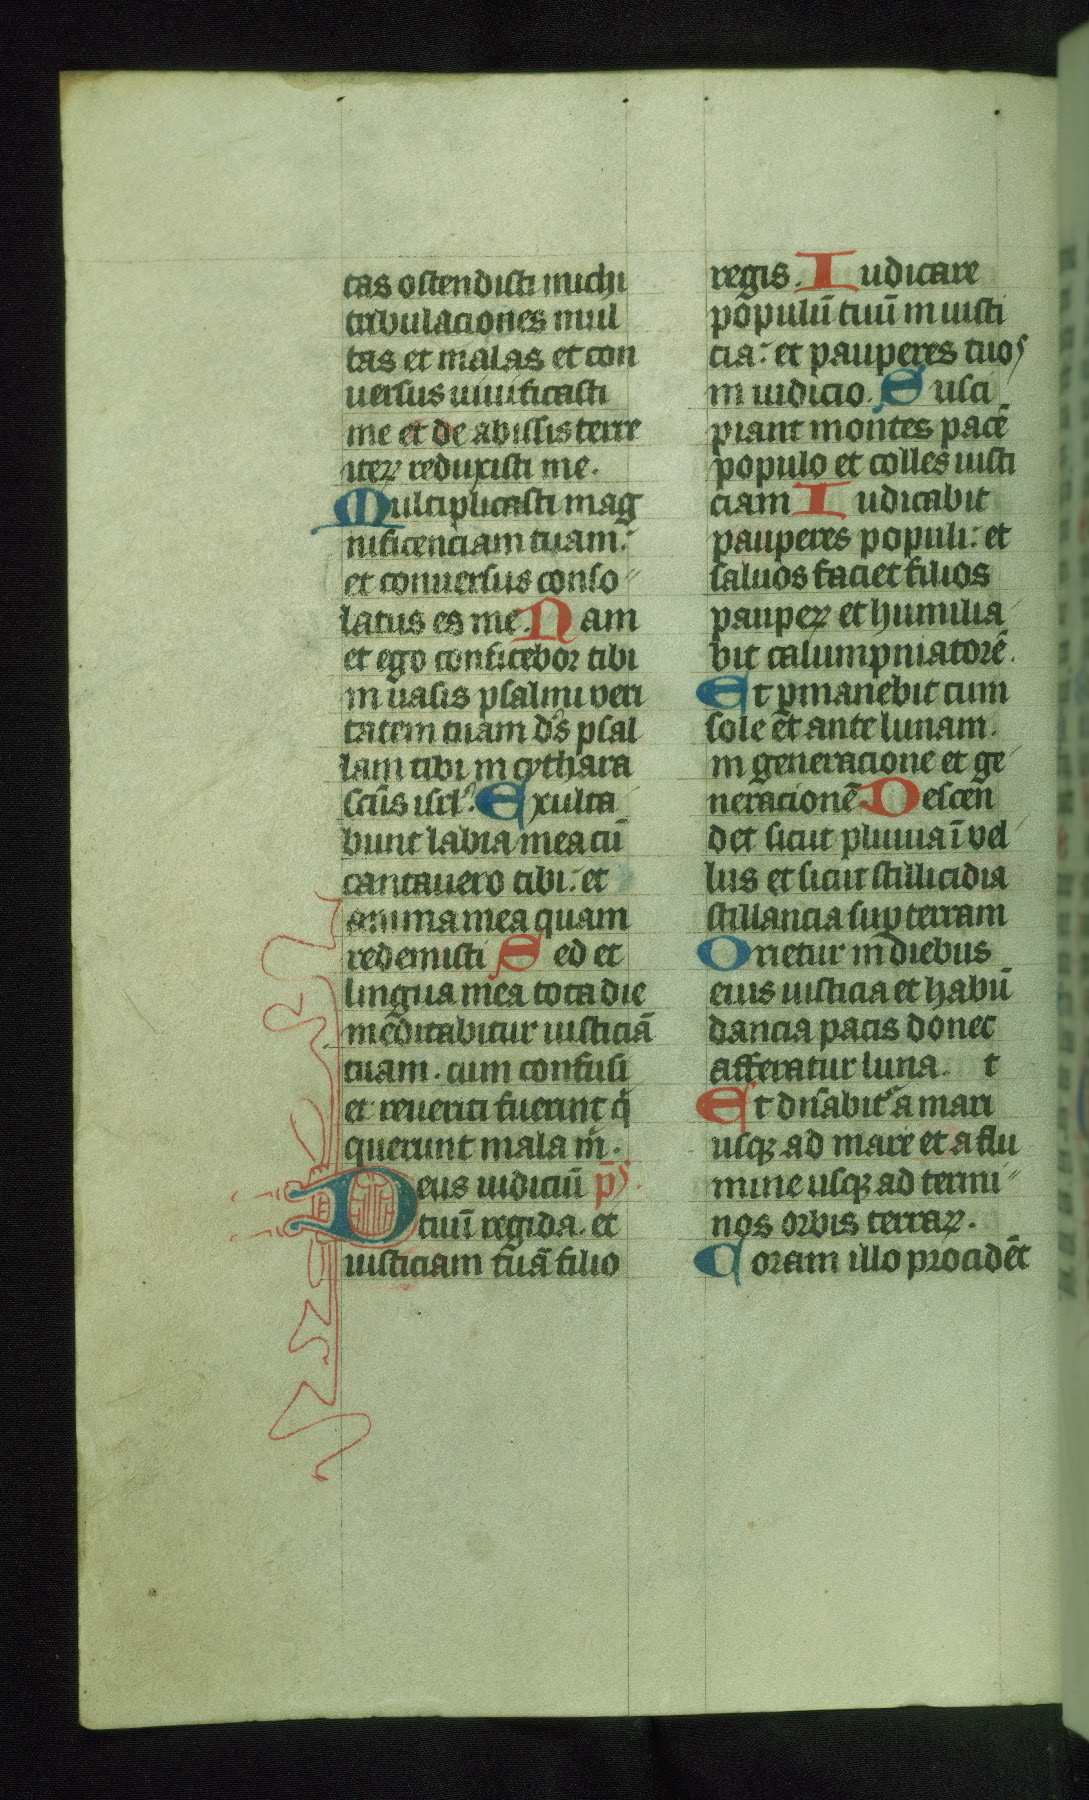 tas ostendisti michi
tribulaciones mul
tas et malas et con
uersus uiuificasti
me et de abissis terre
iteꝝ reduxisti me.
Multiplicasti mag
nificenciam tuam:
et conuersus conso
latus es me. Nam
et ego confitebor tibi
in uasis psalmi veri
tatem tuam ds̄ psal
lam tibi in cythara
sctūs isrl̄. Exulta
bunt labia mea cū
cantauero tibi: et
anima mea quam
redemisti Sed et
lingua mea tota die
meditabitur iusticiā
tuam. cum confusi
et reueriti fuerint q̄
querunt mala m̄.
Deus iudiciū p̄s.
tuū regi da. et
iusticiam tuā filio
regis. Iudicare
populū tuū in iusti
cia: et pauperes tuos
in iudicio. Susci
piant montes pacē
populo et colles iusti
ciam Iudicabit
pauperes populi: et
saluos faciet filios
paupeꝝ et humilia
bit calumpniatorē.
Et ꝑmanebit cum
sole et ante lunam.
in generacione et ge
neracionē. Descen
det sicut pluuia ī vel
lus et sicut stillicidia
stillancia suꝑ terram
Orietur in diebus
eius iusticia et habū
dancia pacis donec
afferatur luna. t
Et dn̄abit᷑ a mari
usqꝫ ad mare et a flu
mine usqꝫ ad termi
nos orbis terraꝝ.
Coram illo procidēt